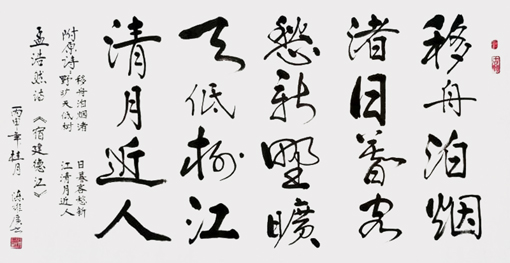 移舟泊烟
渚日暮客
愁新野曠
天低樹江
清月近人
附原诗
移舟泊烟渚 日暮客愁新
野旷天低树 江清月近人
孟浩然诗《宿建德江》
丙申年桂月